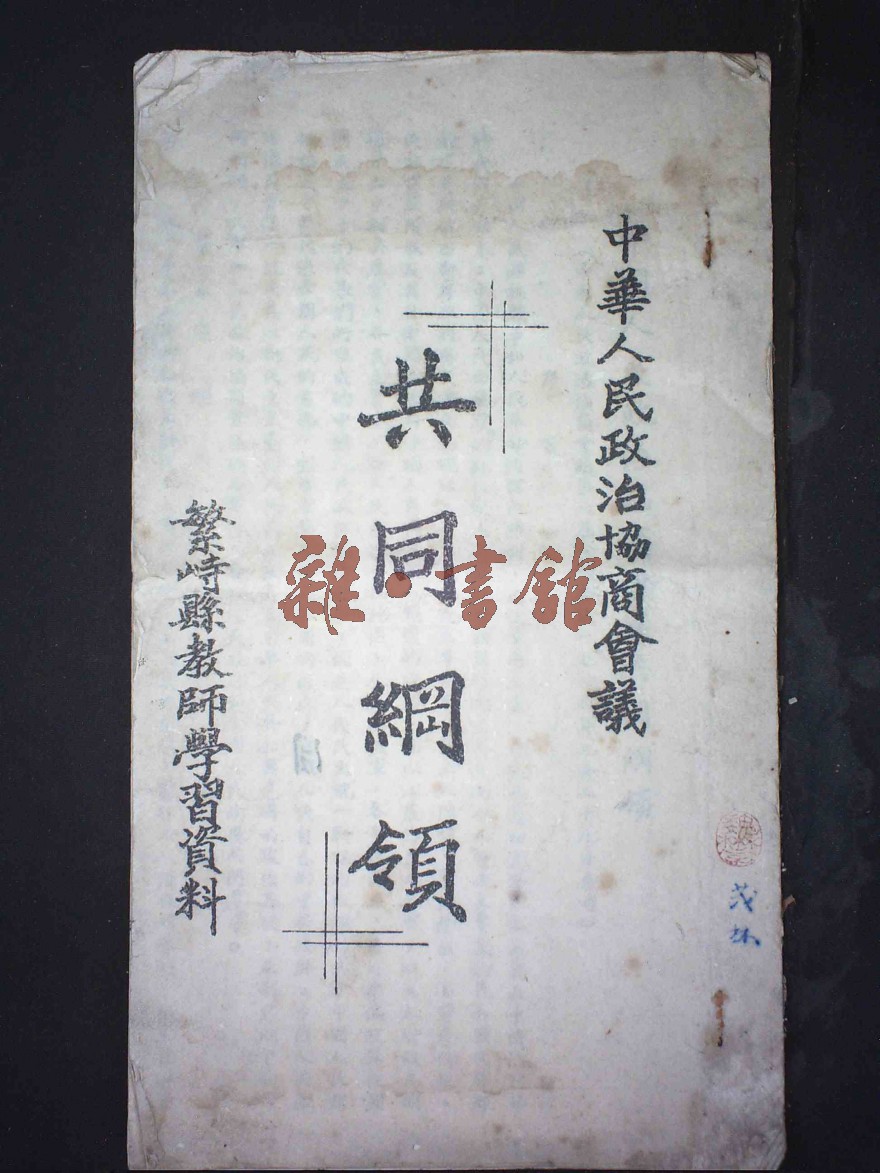 中華人民政治協商會議
共同綱領
繁峙縣教師學習資料
雜·書舘
茂林